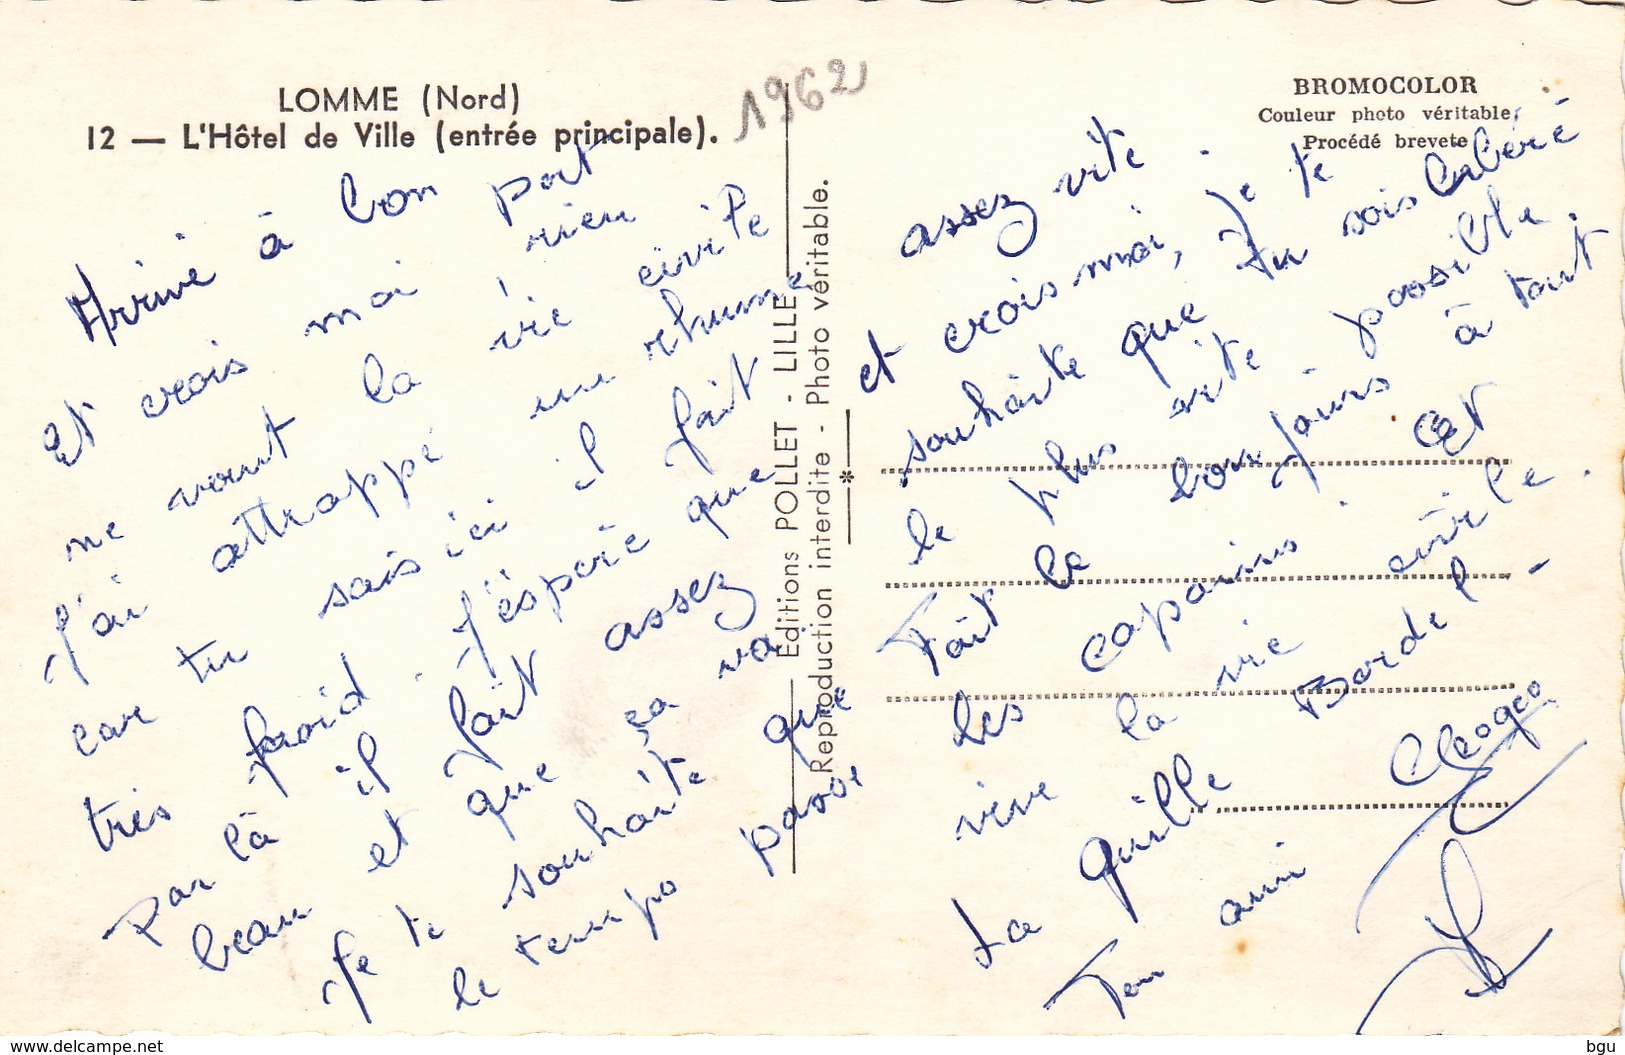 LOMME (Nord)
12 — L'Hôtel de Ville (entrée principale).
1962
BROMOCOLOR
Couleur photo véritable
Procédé brevete
Editions POLLET - LILLE
Reproduction interdite - Photo véritable.
*
Arrivé à bon port
Et crois moi rien
ne vaut la vie civile
J'ai attrappé un rhume
car tu sais ici il fait
très froid. J'éspère que
par là il fait assez
beau et que ça va
Je te souhaite que
le temps passe
assez vite.
et crois moi, Je te
souhaite que tu sois libéré
le plus vite possible.
Fait le bonjours à tout
les copains. Et
vive la vie civile.
La quille Bordel -
Ton ami
www.delcampe.net
bgu